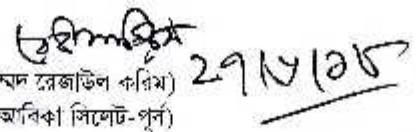 ২৭/৮/১৮
মদ রেজাউল করিম)
আবিকা সিলেট-পূর্ব)